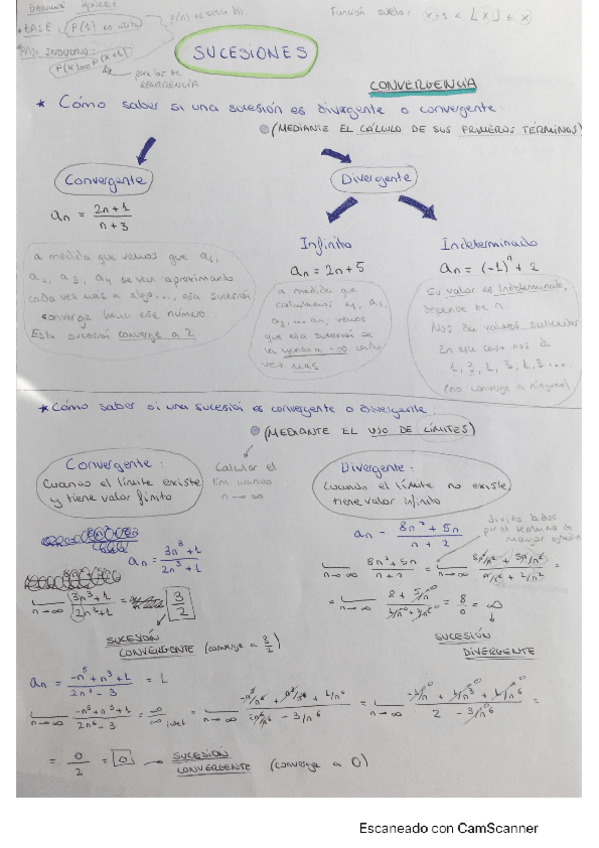 * BASE: P(1) es cierto
Función suelo: x-1 < ⌊x⌋ ≤ x
P(k) => P(k+1)
SUCESIONES
CONVERGENCIA
* Cómo saber si una sucesión es divergente o convergente:
(MEDIANTE EL CÁLCULO DE SUS PRIMEROS TÉRMINOS)
Convergente
an = 2n+1 / n+3
a medida que vemos que a1,
a2, a3, a4 se van aproximando
cada vez más a algo..., esa sucesión
converge hacia ese número.
Esta sucesión converge a 2
Divergente
Infinito
an = 2n+5
a medida que
calculamos a1, a2,
a3... an, vemos
que esa sucesión se
va
vez más
Indeterminado
an = (-1)^n + 2
Su valor es indeterminado,
depende de n.
Nos da valores
En este caso nos da
1, 3, 1, 3, 1, 3 ...
(no converge a ninguno)
* Cómo saber si una sucesión es convergente o divergente:
(MEDIANTE EL USO DE LÍMITES)
Convergente:
Cuando el límite existe
y tiene valor finito
Calcular el
lim. cuando
n→∞
Divergente:
Cuando el límite no existe
tiene valor infinito
an = 3n³+1 / 2n³+1
lim n→∞ 3n³+1 / 2n³+1 = 3/2
SUCESIÓN
CONVERGENTE (converge a 3/2)
an = 8n²+5n / n+2
divido todos
por el término de
mayor
lim n→∞ 8n²+5n / n+2 = lim n→∞ 8n²/n² + 5n/n² / n/n² + 2/n² =
= lim n→∞ 8 + 5/n / 1/n + 2/n² = 8/0 = ∞
SUCESIÓN
DIVERGENTE
an = -n⁵+n³+1 / 2n⁶-3 = L
lim n→∞ -n⁵+n³+1 / 2n⁶-3 = ∞/∞ indet = lim n→∞ -n⁵/n⁶ + n³/n⁶ + 1/n⁶ / 2n⁶/n⁶ - 3/n⁶ = lim n→∞ -1/n + 1/n³ + 1/n⁶ / 2 - 3/n⁶ =
= 0/2 = 0 → SUCESIÓN
CONVERGENTE (converge a 0)
Escaneado con CamScanner